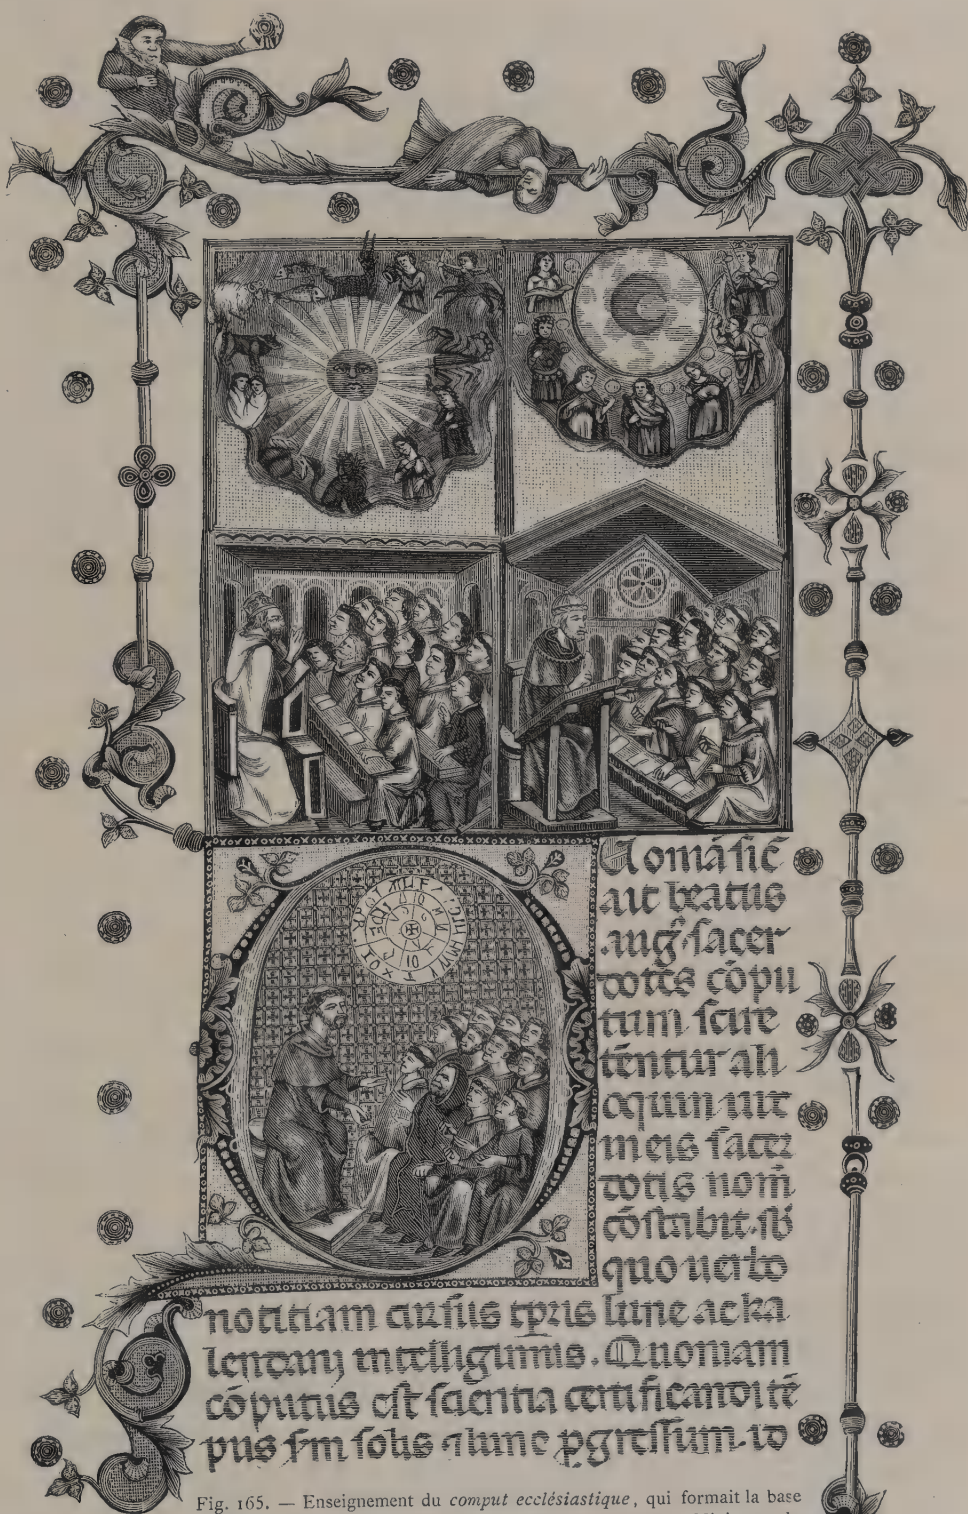 ait beatus
aug᷒. sacer
dotes cōpu
tum scire
tēntur ali
oquin uix
in eis sacer
dotis nom̄
cōstabit. sb̄
quo uerbo
notitiam cursus tp̄ris lune ac ka
lendarij intelligimus. Quoniam
cōputus est scientia certificandi tē
pus sm̄ solis ⁊ lune ꝓgressum. io
Fig. 165. — Enseignement du comput ecclésiastique, qui formait la base